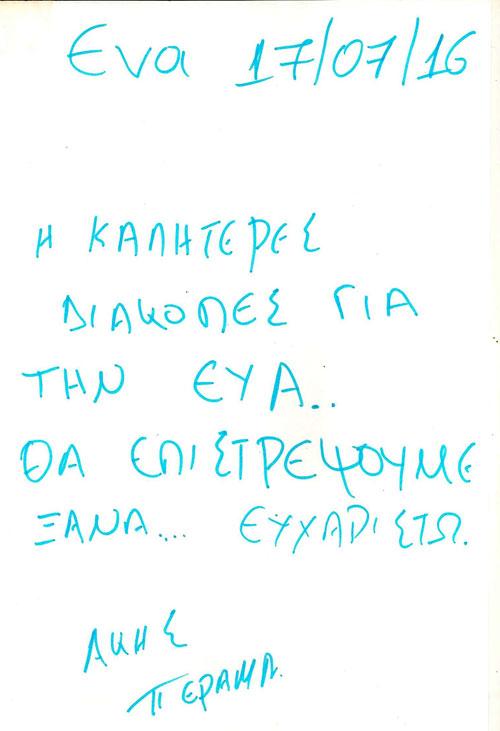 Ενα 17/07/16
Η ΚΑΛΗΤΕΡΕΣ
ΔΙΑΚΟΠΕΣ ΓΙΑ
ΤΗΝ ΕΥΑ..
ΘΑ ΕΠΙΣΤΡΕΨΟΥΜΕ
ΞΑΝΑ.... ΕΥΧΑΡΙΣΤΩ.
ΑΚΗΣ
ΠΕΡΑΜΑ.